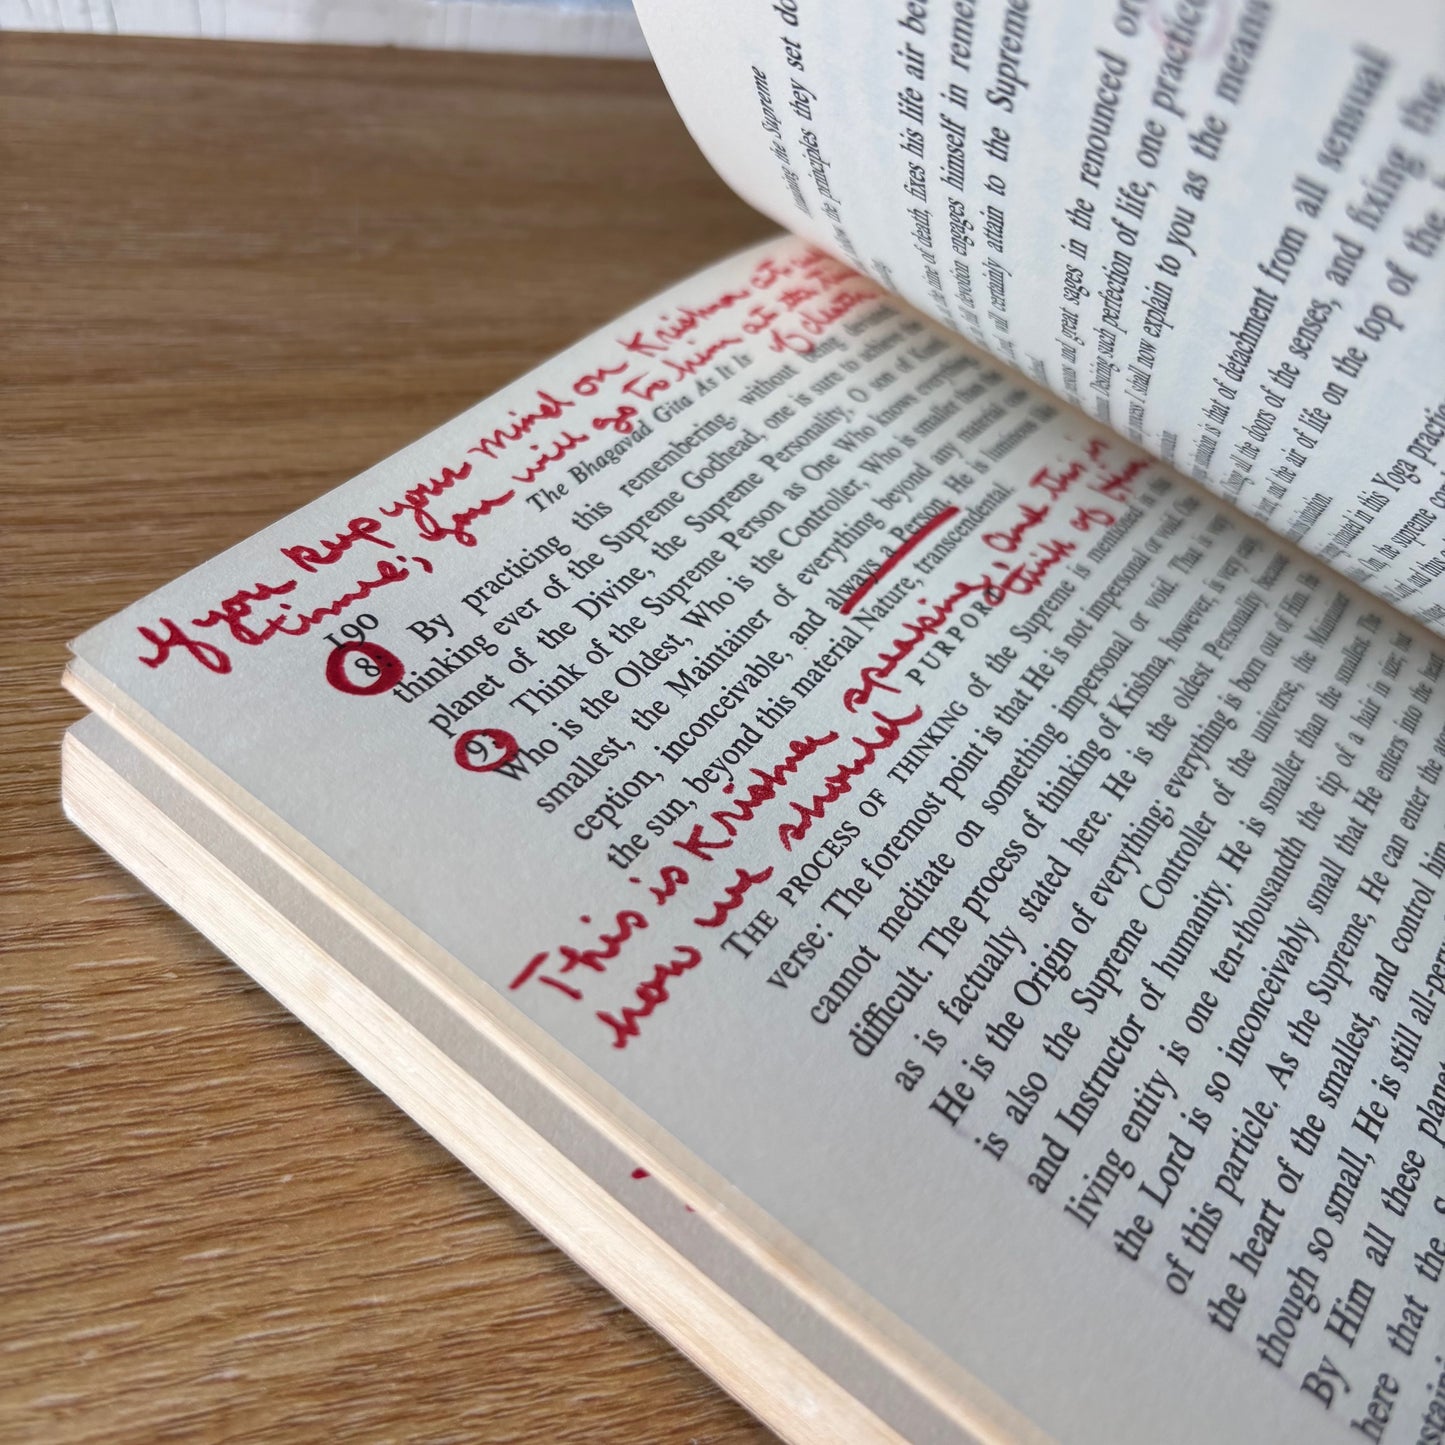 If you keep your mind on Krishna at
time, you will go to him at the time
of death
190
The Bhagavad Gita As It Is
8: By practicing this remembering, without being
thinking ever of the Supreme Godhead, one is sure to achieve the
planet of the Divine, the Supreme Personality, O son of
9: Think of the Supreme Person as One Who knows everything,
Who is the Oldest, Who is the Controller, Who is smaller than the
smallest, the Maintainer of everything, beyond any material con-
ception, inconceivable, and always a Person. He is luminous like
the sun, beyond this material Nature, transcendental.
This is Krishna speaking, and this is
how we should think of Him
PURPORT
THE PROCESS OF THINKING of the Supreme is mentioned in this
verse: The foremost point is that He is not impersonal or void. One
cannot meditate on something impersonal or void. That is very
difficult. The process of thinking of Krishna, however, is very easy,
as is factually stated here. He is the oldest Personality because
He is the Origin of everything; everything is born out of Him. He
is also the Supreme Controller of the universe, the Maintainer
and Instructor of humanity. He is smaller than the smallest. The
living entity is one ten-thousandth the tip of a hair in size, but
the Lord is so inconceivably small that He enters into the heart
of this particle. As the Supreme, He can enter the
the heart of the smallest, and control him
though so small, He is still all-per
By Him all these planet
here that the
Attaining the Supreme
the principles they set do
the time of death, fixes his life air bet
devotion engages himself in remem
will certainly attain to the Supreme
and great sages in the renounced or
Desiring such perfection of life, one practice
process I shall now explain to you as the means
is that of detachment from all sensual
all the doors of the senses, and fixing the
and the air of life on the top of the
in this Yoga practi
the supreme co